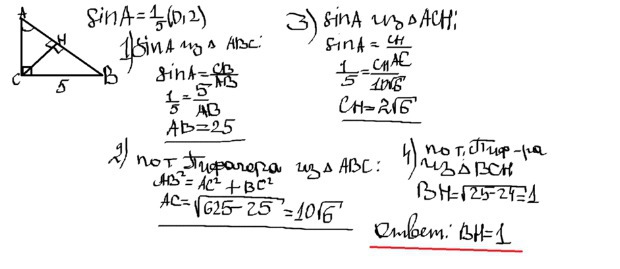 A
H
C
5
B
sinA = 1/5 (0,2)
1) sinA из △ABC:
sinA = CB/AB
1/5 = 5/AB
AB = 25
2) по т. Пифагора из △ABC:
AB² = AC² + BC²
AC = √(625-25) = 10√6
3) sinA из △ACH:
sinA = CH/AC
1/5 = CH/10√6
CH = 2√6
4) по т. Пиф-ра
из △BCH
BH = √(25-24) = 1
Ответ: BH = 1